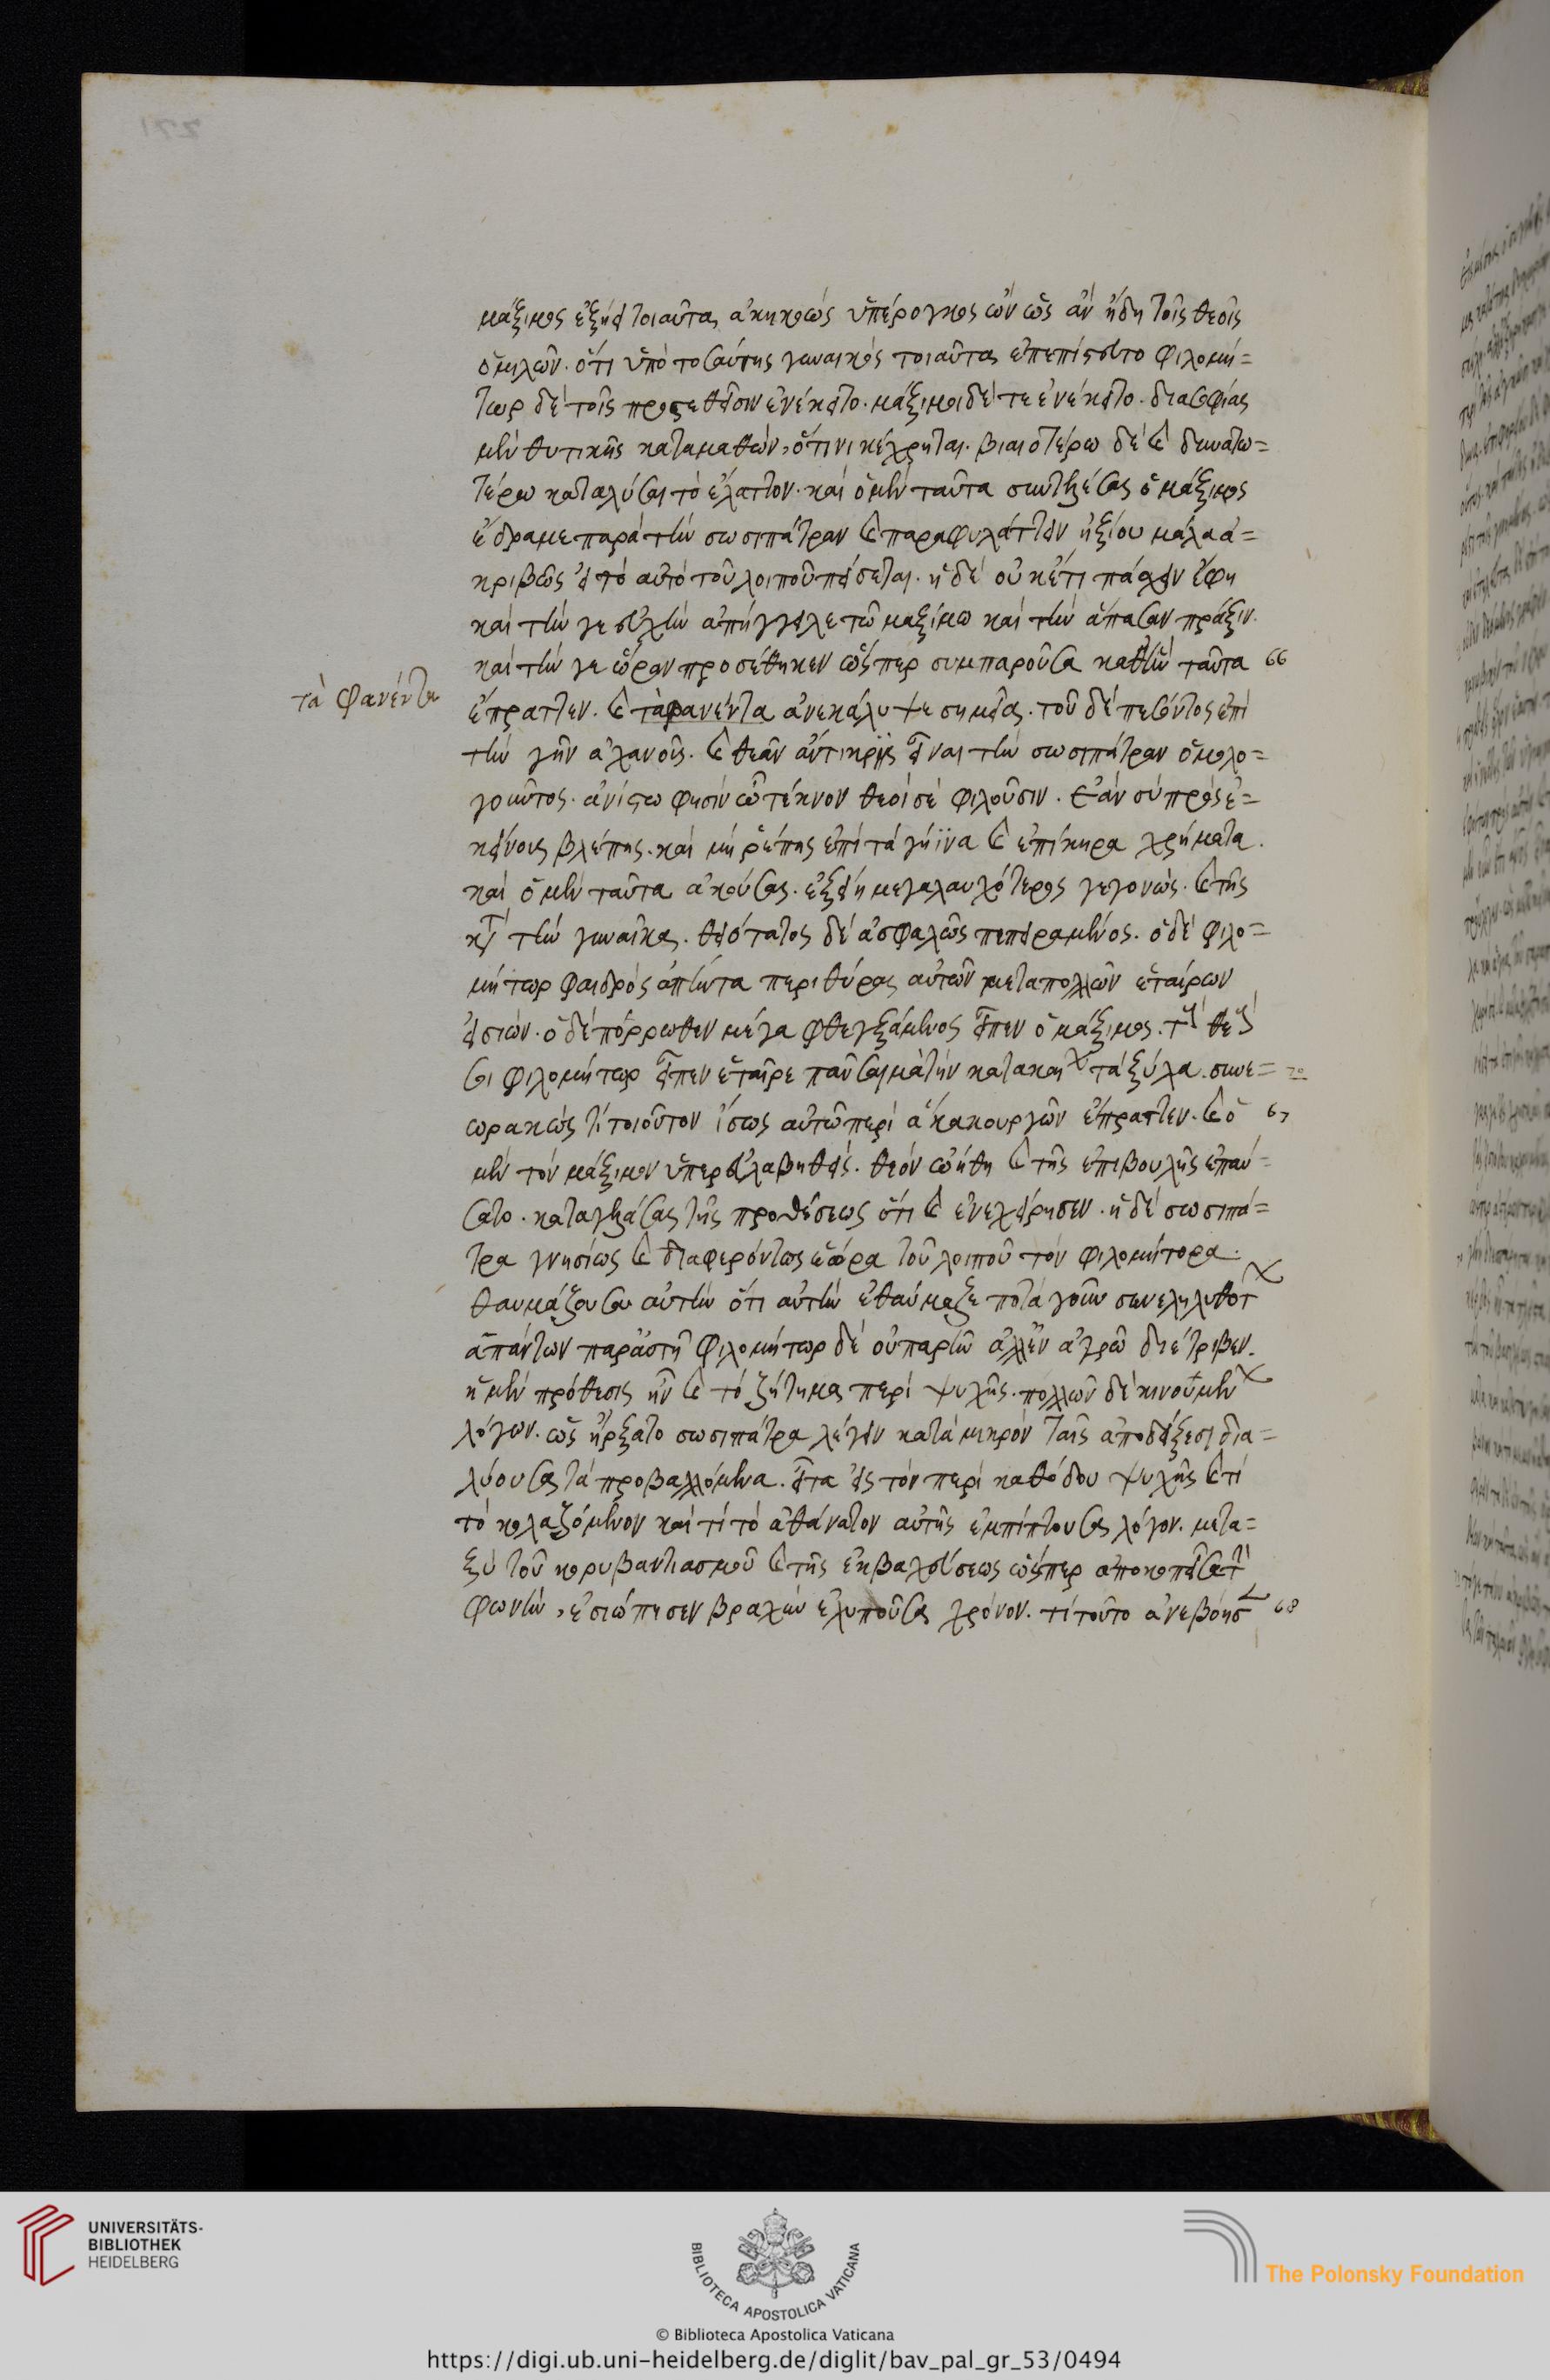 μάξιμος ἐξῄει τοιαῦτα ἀκηκοώς ὑπέρογκος ὢν ὡς ἂν ἤδη τοῖς θεοῖς
ὁμιλῶν. ὅτι ὑπὸ τοσαύτης γυναικός τοιαῦτα ἐπεπίστευτο φιλομή=
τωρ δὲ τοῖς προτεθεῖσιν ἐνέκειτο. μάξιμος δέ τε ἐνέκειτο. διασοφίας
μὲν θυτικῆς καταμαθὼν, ὅτινι κέχρηται. βιαιοτέρω δὲ καὶ δυνατω=
τέρω καταλύσαι τὸ ἔλαττον. καὶ ὁ μὲν ταῦτα συντελέσας ὁ μάξιμος
ἔδραμε παρὰ τὴν σωσιπάτραν καὶ παραφυλάττειν ἠξίου μάλα ἀ=
κριβῶς εἰ τὸ αὐτὸ τοῦ λοιποῦ πείσεται. ἡ δὲ οὐκέτι πάσχειν ἔφη
καὶ τήν γε εὐχὴν ἀπήγγειλε τῶ μαξίμω καὶ τὴν ἅπασαν πράξιν.
καὶ τήν γε ὥραν προσέθηκεν ὥσπερ συμπαροῦσα καθ' ἣν ταῦτα 66
τὰ φανέντα
ἔπραττεν. καὶ τὰ φανέντα ἀνεκάλυψε σημεῖα. τοῦ δὲ πεσόντος ἐπὶ
τὴν γῆν ἀχανοῦς. καὶ θεὰν ἄντικρυς εἶναι τὴν σωσιπάτραν ὁμολο=
γοῦντος. ἀνίστω φησὶν ὦ τέκνον θεοί σε φιλοῦσιν. ἐὰν σὺ πρὸς ἐ=
κείνους βλέπης. καὶ μὴ ῥέπης ἐπὶ τὰ γήϊνα καὶ ἐπίκηρα χρήματα.
καὶ ὁ μὲν ταῦτα ἀκούσας. ἐξείη μεγαλαυχότερος γεγονὼς. καὶ τῆς
κατὰ τὴν γυναῖκα. θειότατος δὲ ἀσφαλῶς πεπειραμένος. ὁ δὲ φιλο=
μήτωρ φαιδρὸς ἀπήντα περὶ θύρας αὐτῶν μετὰ πολλῶν ἑταίρων
εἰσιών. ὁ δὲ πόρρωθεν μέγα φθεγξάμενος εἶπεν ὁ μάξιμος. τοὺς θεοὺς
σοι φιλομήτωρ εἶπεν ἑταῖρε παῦσαι μάτην κατακαίων τὰ ξύλα. συνε=
ωρακὼς τί τοιοῦτον ἴσως αὐτῶ περὶ ἃ κακουργῶν ἔπραττεν. καὶ ὁ 67
μὲν τὸν μάξιμον ὑπερευλαβηθεὶς. θεὸν ὠήθη καὶ τῆς ἐπιβουλῆς ἐπαύ=
σατο. καταγελάσας τῆς προθέσεως ὅτι καὶ ἐνεχείρησεν. ἡ δὲ σωσιπά=
τρα γνησίως καὶ διαφερόντως ἑώρα τοῦ λοιποῦ τὸν φιλομήτορα.
θαυμάζουσα αὐτὴν ὅτι αὐτὴν ἐθαύμαζε ποτὲ γοῦν συνεληλυθότων
ἁπάντων παρ' αὐτῆ φιλομήτωρ δὲ οὐ παρῆν ἀλλ' ἐν ἀγρῶ διέτριβεν.
ἡ μὲν πρόθεσις ἦν καὶ τὸ ζήτημα περὶ ψυχῆς. πολλῶν δὲ κινουμένων
λόγων. ὡς ἤρξατο σωσιπάτρα λέγειν κατὰ μικρὸν ταῖς ἀποδείξεσι δια=
λύουσα τὰ προβαλλόμενα. εἶτα εἰς τὸν περὶ καθόδου ψυχῆς καὶ τί
τὸ κολαζόμενον καὶ τί τὸ ἀθάνατον αὐτῆς ἐμπίπτουσα λόγον. μετα=
ξὺ τοῦ κορυβαντιασμοῦ καὶ τῆς ἐκβαχεύσεως ὥσπερ ἀποκοπεῖσα τὴν
φωνὴν, ἐσιώπησεν βραχὺν ἐλλιποῦσα χρόνον. τί τοῦτο ἀνεβόησεν 68
UNIVERSITÄTS-
BIBLIOTHEK
HEIDELBERG
BIBLIOTECA APOSTOLICA VATICANA
The Polonsky Foundation
© Biblioteca Apostolica Vaticana
https://digi.ub.uni-heidelberg.de/diglit/bav_pal_gr_53/0494